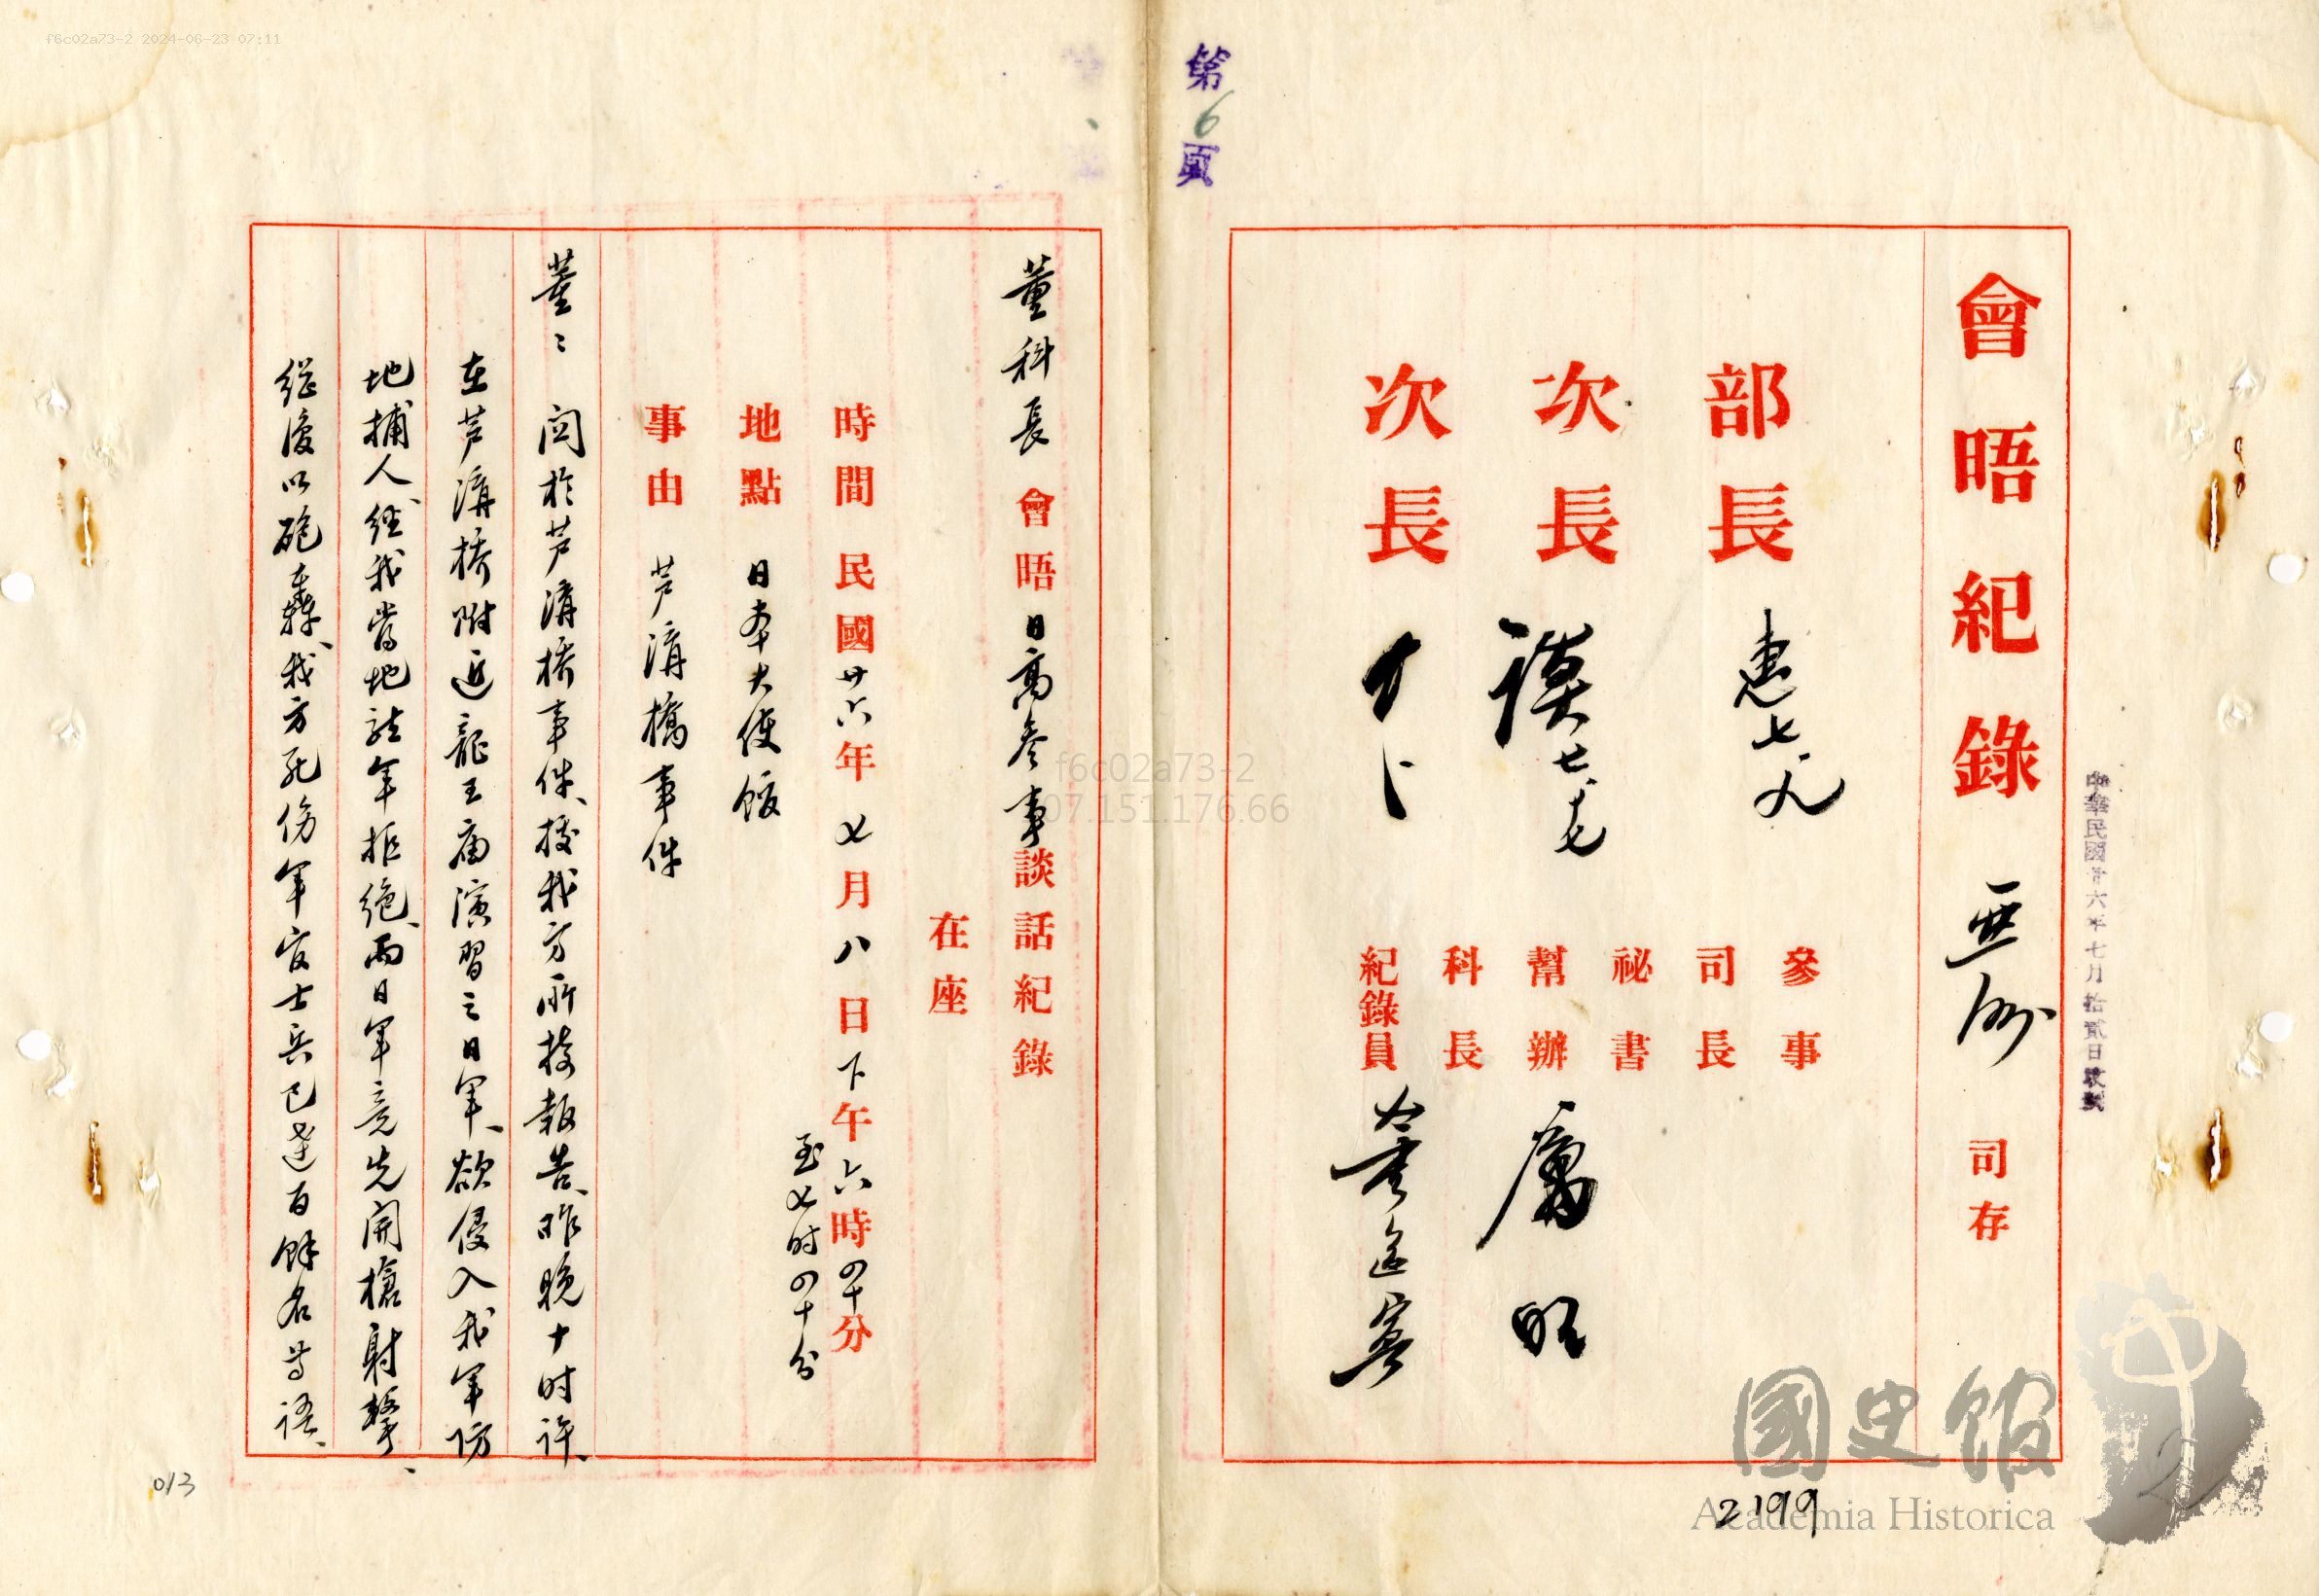 f6c02a73-2 2024-06-23 07:11
第6頁
會晤紀錄 亞洲 司存
中華民國廿六年七月拾貳日收到
部長 惠 七、九
次長 謨 七、七
次長
參事
司長
祕書
幫辦
科長
紀錄員 董道寧
董科長會晤日高參事談話紀錄
在座
時間 民國廿六年七月八日下午六時四十分
至七时四十分
地點 日本大使館
事由 芦溝橋事件
董: 関於芦溝橋事件、據我方所接報告、昨晚十时許、
在芦溝橋附近龍王庙演習之日軍、欲侵入我軍防
地捕人、經我當地駐軍拒絕、而日軍竟先開槍射擊、
繼復以砲轟、我方死傷軍官士兵已達百餘名等語、
f6c02a73-2
07.151.176.66
013
國史館
Academia Historica
2199